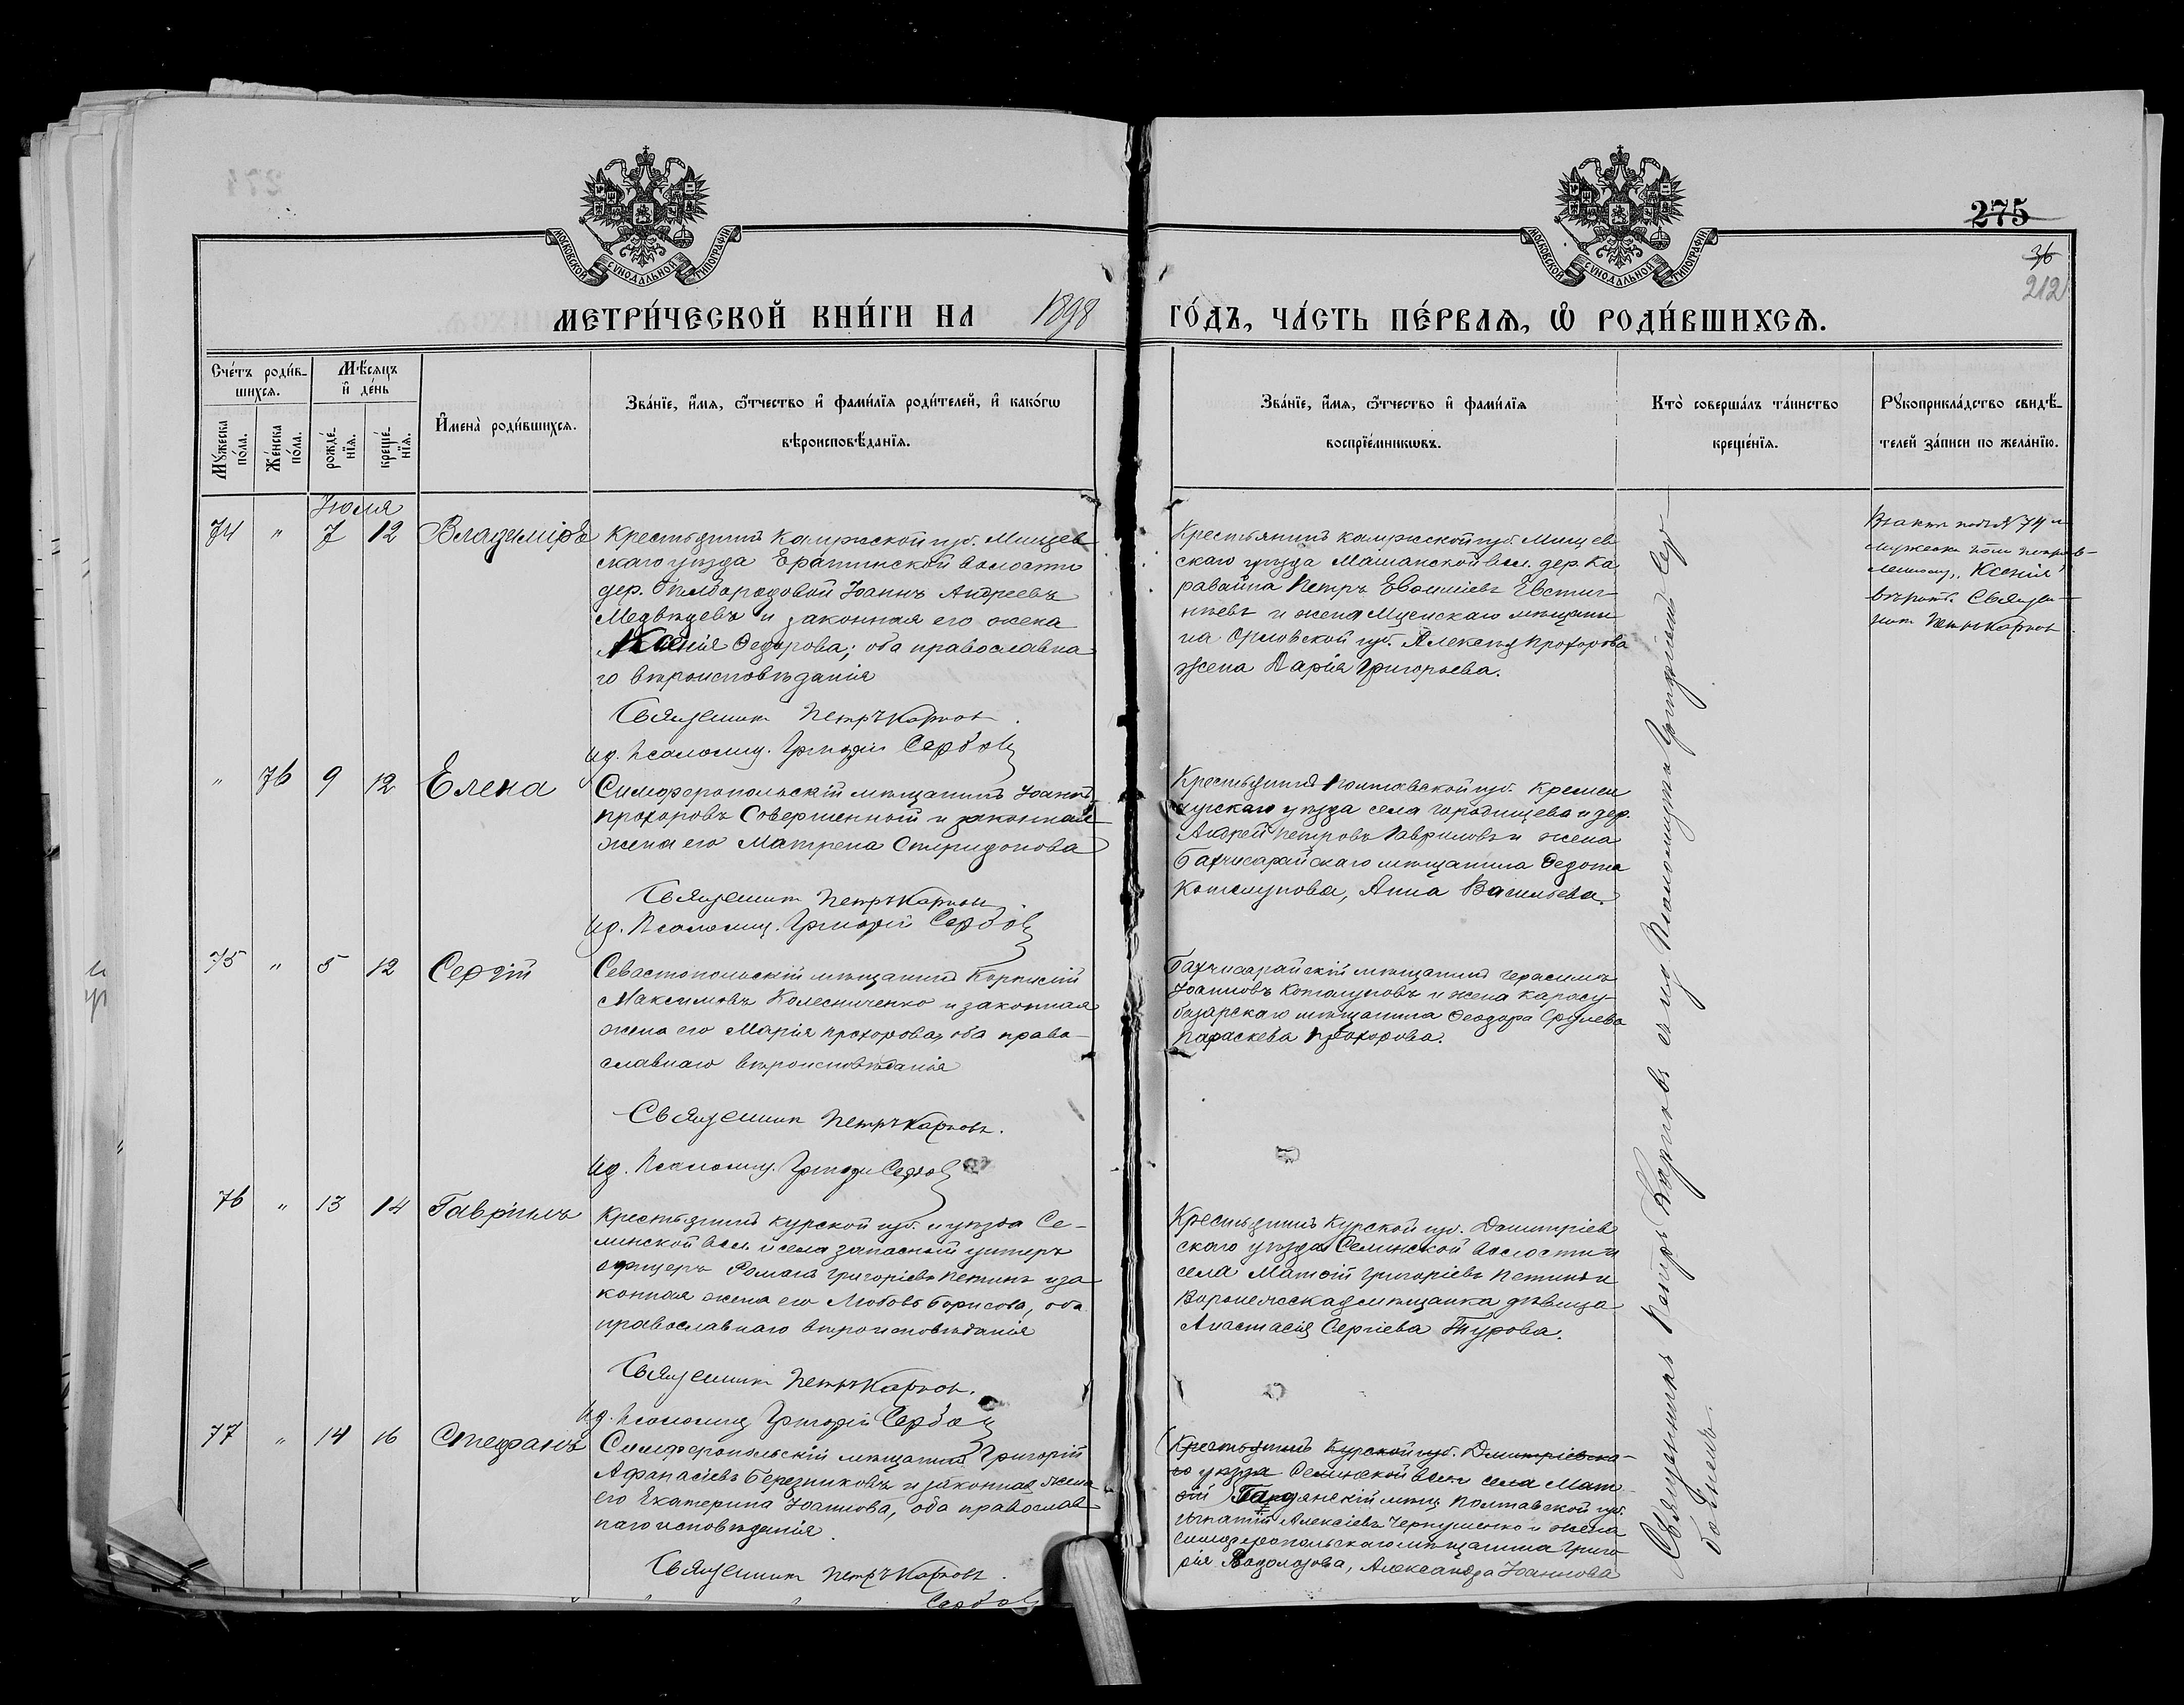 275
36
212
МОСКОВСКОЙ СѴНОДАЛЬНОЙ ТИПОГРАФІИ
МОСКОВСКОЙ СѴНОДАЛЬНОЙ ТИПОГРАФІИ
МЕТРИ́ЧЕСКОЙ КНИ́ГИ НА 1898 ГО́ДЪ, ЧА́СТЬ ПЕ́РВАѦ, Ѡ҆ РОДИ́ВШИХСѦ.
Сче́тъ роди́в-
шихсѧ.
Мꙋ́жеска по́ла.
Же́нска по́ла.
Мѣ́сѧцъ
и҆ де́нь
рожде́-
нїѧ.
креще́-
нїѧ.
И҆мена̀ роди́вшихсѧ.
Зва́нїе, и҆́мѧ, ѻ҆́тчество и҆ фами́лїѧ роди́телей, и҆ како́гѡ
вѣроисповѣ́данїѧ.
Зва́нїе, и҆́мѧ, ѻ҆́тчество и҆ фами́лїѧ
воспрїе́мникѡвъ.
Кто̀ соверша́лъ та́инство
креще́нїѧ.
Рꙋкоприкла́дство свидѣ́-
телей за́писи по жела́нїю.
Іюля
74 " 7 12 Владиміръ
Крестьянинъ Калужской губ. Мищев
скаго уѣзда волости
дер. Іоаннъ Андреевъ
Медвѣдевъ и законная его жена
Ксенія Федорова; оба православна
го вѣроисповѣданія
Священникъ Петръ Карповъ.
Ид. Псаломщ. Григорій Сербовъ
Крестьянинъ калужской губ. Мищев
скаго уѣзда вол. дер. Ка
равайна Петръ Евстиг-
нѣевъ и жена Мценскаго мѣщани
на Орловской губ. Алексѣя Прохорова
жена Дарія Григорьева.
Въ актѣ подъ № 74 м
мужеска пола исправ-
ленному "Ксенія"
вѣрить. Священ-
никъ Петръ Карповъ
" 76 9 12 Елена
Симферопольскій мѣщанинъ Іоаннъ
Прохоровъ Совершенный и законная
жена его Матрена Спиридонова
Священникъ Петръ Карповъ.
Ид. Псаломщ. Григорій Сербовъ
Крестьянинъ Полтавской губ. Кремен
чугскаго уѣзда села Городищева и дер.
Андрей Петровъ Гавриловъ и жена
Бахчисарайскаго мѣщанина Федота
Котлипова, Анна Васильева.
75 " 5 12 Сергій
Севастопольскій мѣщанинъ Корнилій
Максимовъ Колесниченко и законная
жена его Марія Прохорова, оба право-
славнаго вѣроисповѣданія
Священникъ Петръ Карповъ.
Ид. Псаломщ. Григорій Сербовъ
Бахчисарайскій мѣщанинъ Герасимъ
Іоанновъ и жена карасу-
базарскаго мѣщанина Феодора
Параскева Прохорова.
76 " 13 14 Гавріилъ
Крестьянинъ Курской губ. и уѣзда Се-
линской вол. и села запасный унтеръ
офицеръ Романъ Григоріевъ Петинъ и за
конная жена его Любовь Борисова, оба
православнаго вѣроисповѣданія
Священникъ Петръ Карповъ.
Ид. Псаломщ. Григорій Сербовъ
Крестьянинъ Курской губ. Дмитріев
скаго уѣзда Селинской волости и
села Матѳій Григоріевъ Петинъ и
Воронежская мѣщанка дѣвица
Анастасія Сергіева Турова.
77 " 14 16 Стефанъ
Симферопольскій мѣщанинъ Григорій
Афанасіевъ Березниковъ и законная жена
его Екатерина Іоаннова, оба православ
наго исповѣданія.
Священникъ Петръ Карповъ.
Сербовъ
(Крестьянинъ Курской губ. Дмитріевска-
го уѣзда Селинской вол. села Мат
ѳій) мѣщ. Полтавской губ.
Игнатій Алексіевъ Чернушенко и жена
симферопольскаго мѣщанина Григо
рія Водолазова, Александра Іоаннова
Священникъ Петръ Карповъ съ и.д. Псаломщика Григоріемъ Сер-
бовымъ.